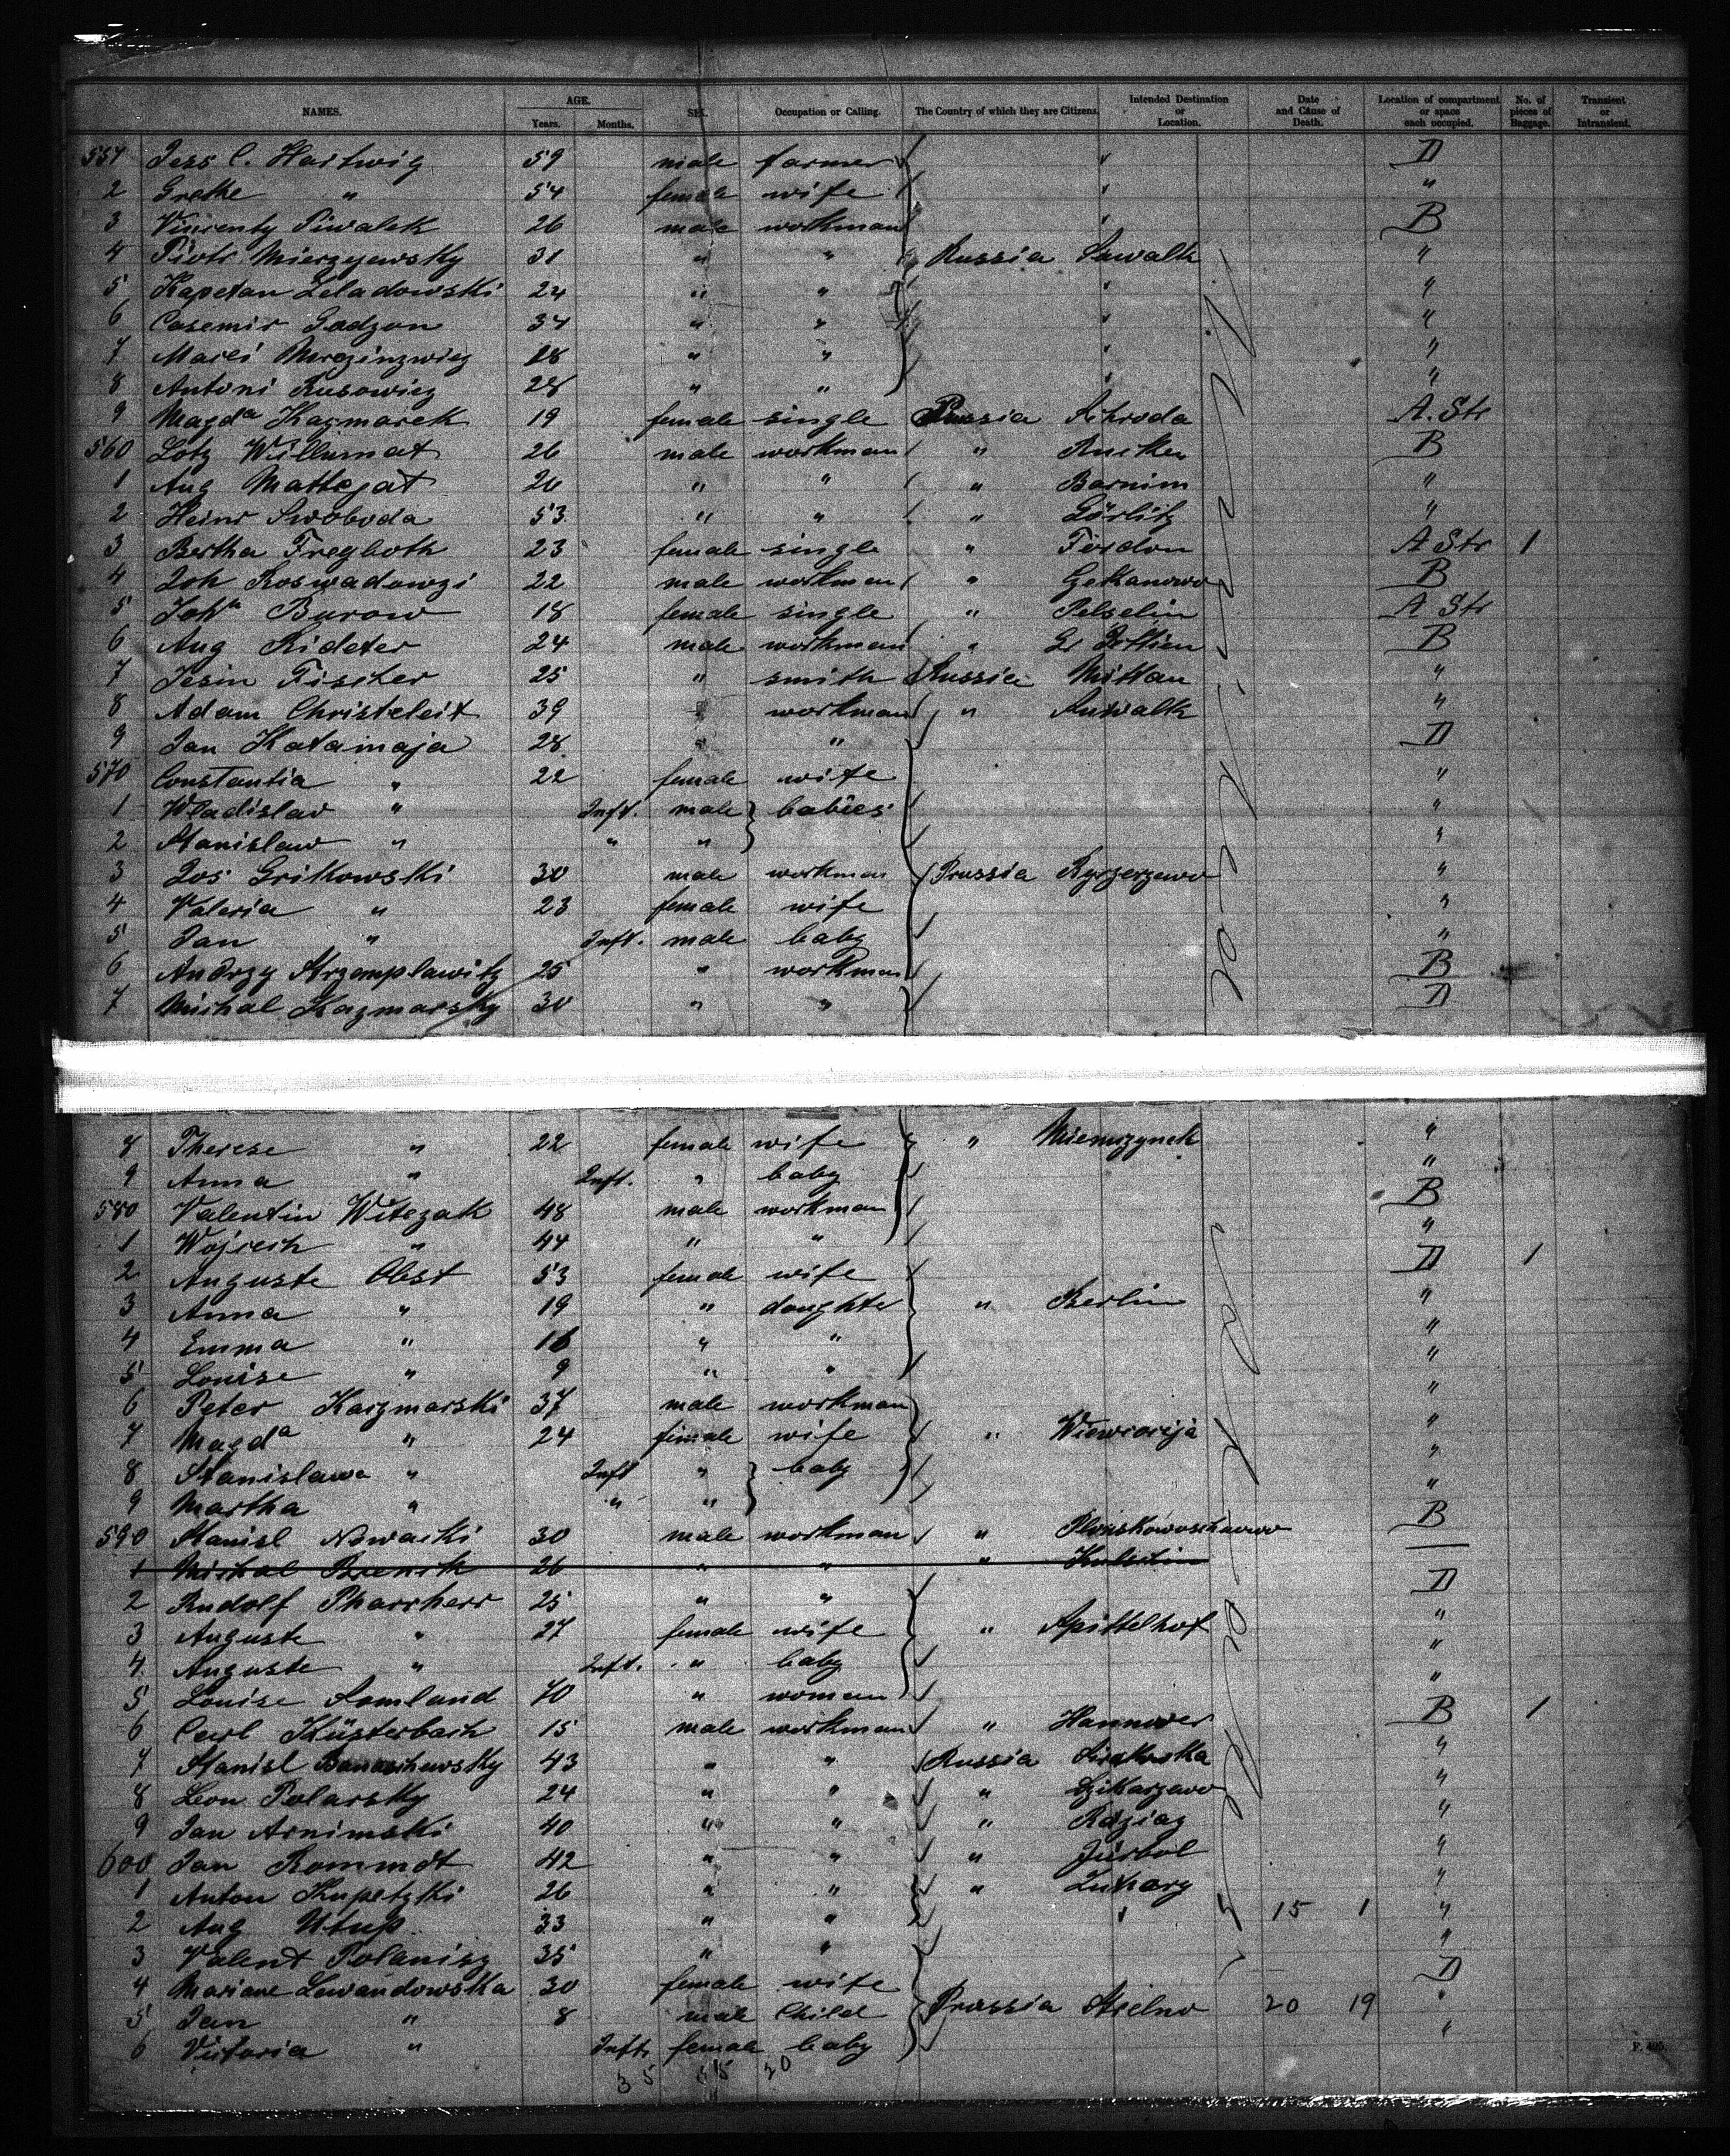 NAMES. AGE. Years. Months. SEX. Occupation or Calling. The Country of which they are Citizens. Intended Destination or Location. Date and Cause of Death. Location of compartment or space each occupied. No. of pieces of Baggage. Transient or Intransient.
551 Jess C. Hartwig 59 male farmer D
2 Grethe " 54 female wife "
3 Vincenty Piwalek 26 male workman B
4 Piotr Mierzyewsky 31 " " Russia Suwalk "
5 Kapetan Zeladowski 24 " " "
6 Casemir Godzon 34 " " "
7 28 " " "
8 Antoni Rusowicz 28 " " "
9 Magda Kazmarek 19 female single Prussia Schroda A. Str
560 Lotz Willumat 26 male workman " Rucken B
1 Aug Mattejat 26 " " " Barnim "
2 Heinr Swoboda 53 " " " Görlitz "
3 Bertha Freyboth 23 female single " Fordon A Str 1
4 Joh Roswadowzi 22 male workman " B
5 Joha Burow 18 female single " Pelzelin A Str
6 Aug Rideter 24 male workman " Gr B
7 Jesin Fischer 25 " smith Russia Mittau "
8 Adam Christeleit 39 workman " Suwalk "
9 Jan Katamaja 28 " " D
570 Constantia " 22 female wife "
1 Wladislav " Inft. male babies "
2 Stanislaw " " " "
3 Jos Grikowski 30 male workman Prussia "
4 Valeria " 23 female wife "
5 Jan " Inft. male baby "
6 Andrzy Strzemplawitz 25 " workman B
7 Michal Kazmarsky 30 " " D
8 Therese " 22 female wife " "
9 Anna " Inft. " baby "
580 Valentin Witczak 48 male workman B
1 Wojciech " 44 " " "
2 Auguste Obst 53 female wife D 1
3 Anna " 19 " daughte " Berlin "
4 Emma " 16 " " "
5 Louise " 9 " " "
6 Peter Kazmarski 37 male workman "
7 Magda " 24 female wife " Wiewiorija "
8 Stanislawa " Inft " baby "
9 Martha " " " "
590 Stanisl Nowacki 30 male workman " B
1 Michal 26 " " "
2 Rudolf Pharrherr 25 " " D
3 Auguste " 27 female wife " Spittelhof "
4 Auguste " Inft. " baby "
5 Louise Samland 70 " woman "
6 Carl Küsterbach 15 male workman " Hannover B 1
7 Stanisl 43 " " Russia "
8 Leon Polarsky 24 " " " "
9 Jan Arnimski 40 " " " Raziaz "
600 Jan Rommdt 42 " " " "
1 Anton Kupetzki 26 " " " "
2 Aug 33 " " 15 1 "
3 Valent Polanisz 35 " " "
4 Mariane Lewandowska 30 female wife D
5 Jan " 8 male Child Prussia Strelno 20 19 "
6 Victoria " Inft. female baby "
35 15 20
F. 405.